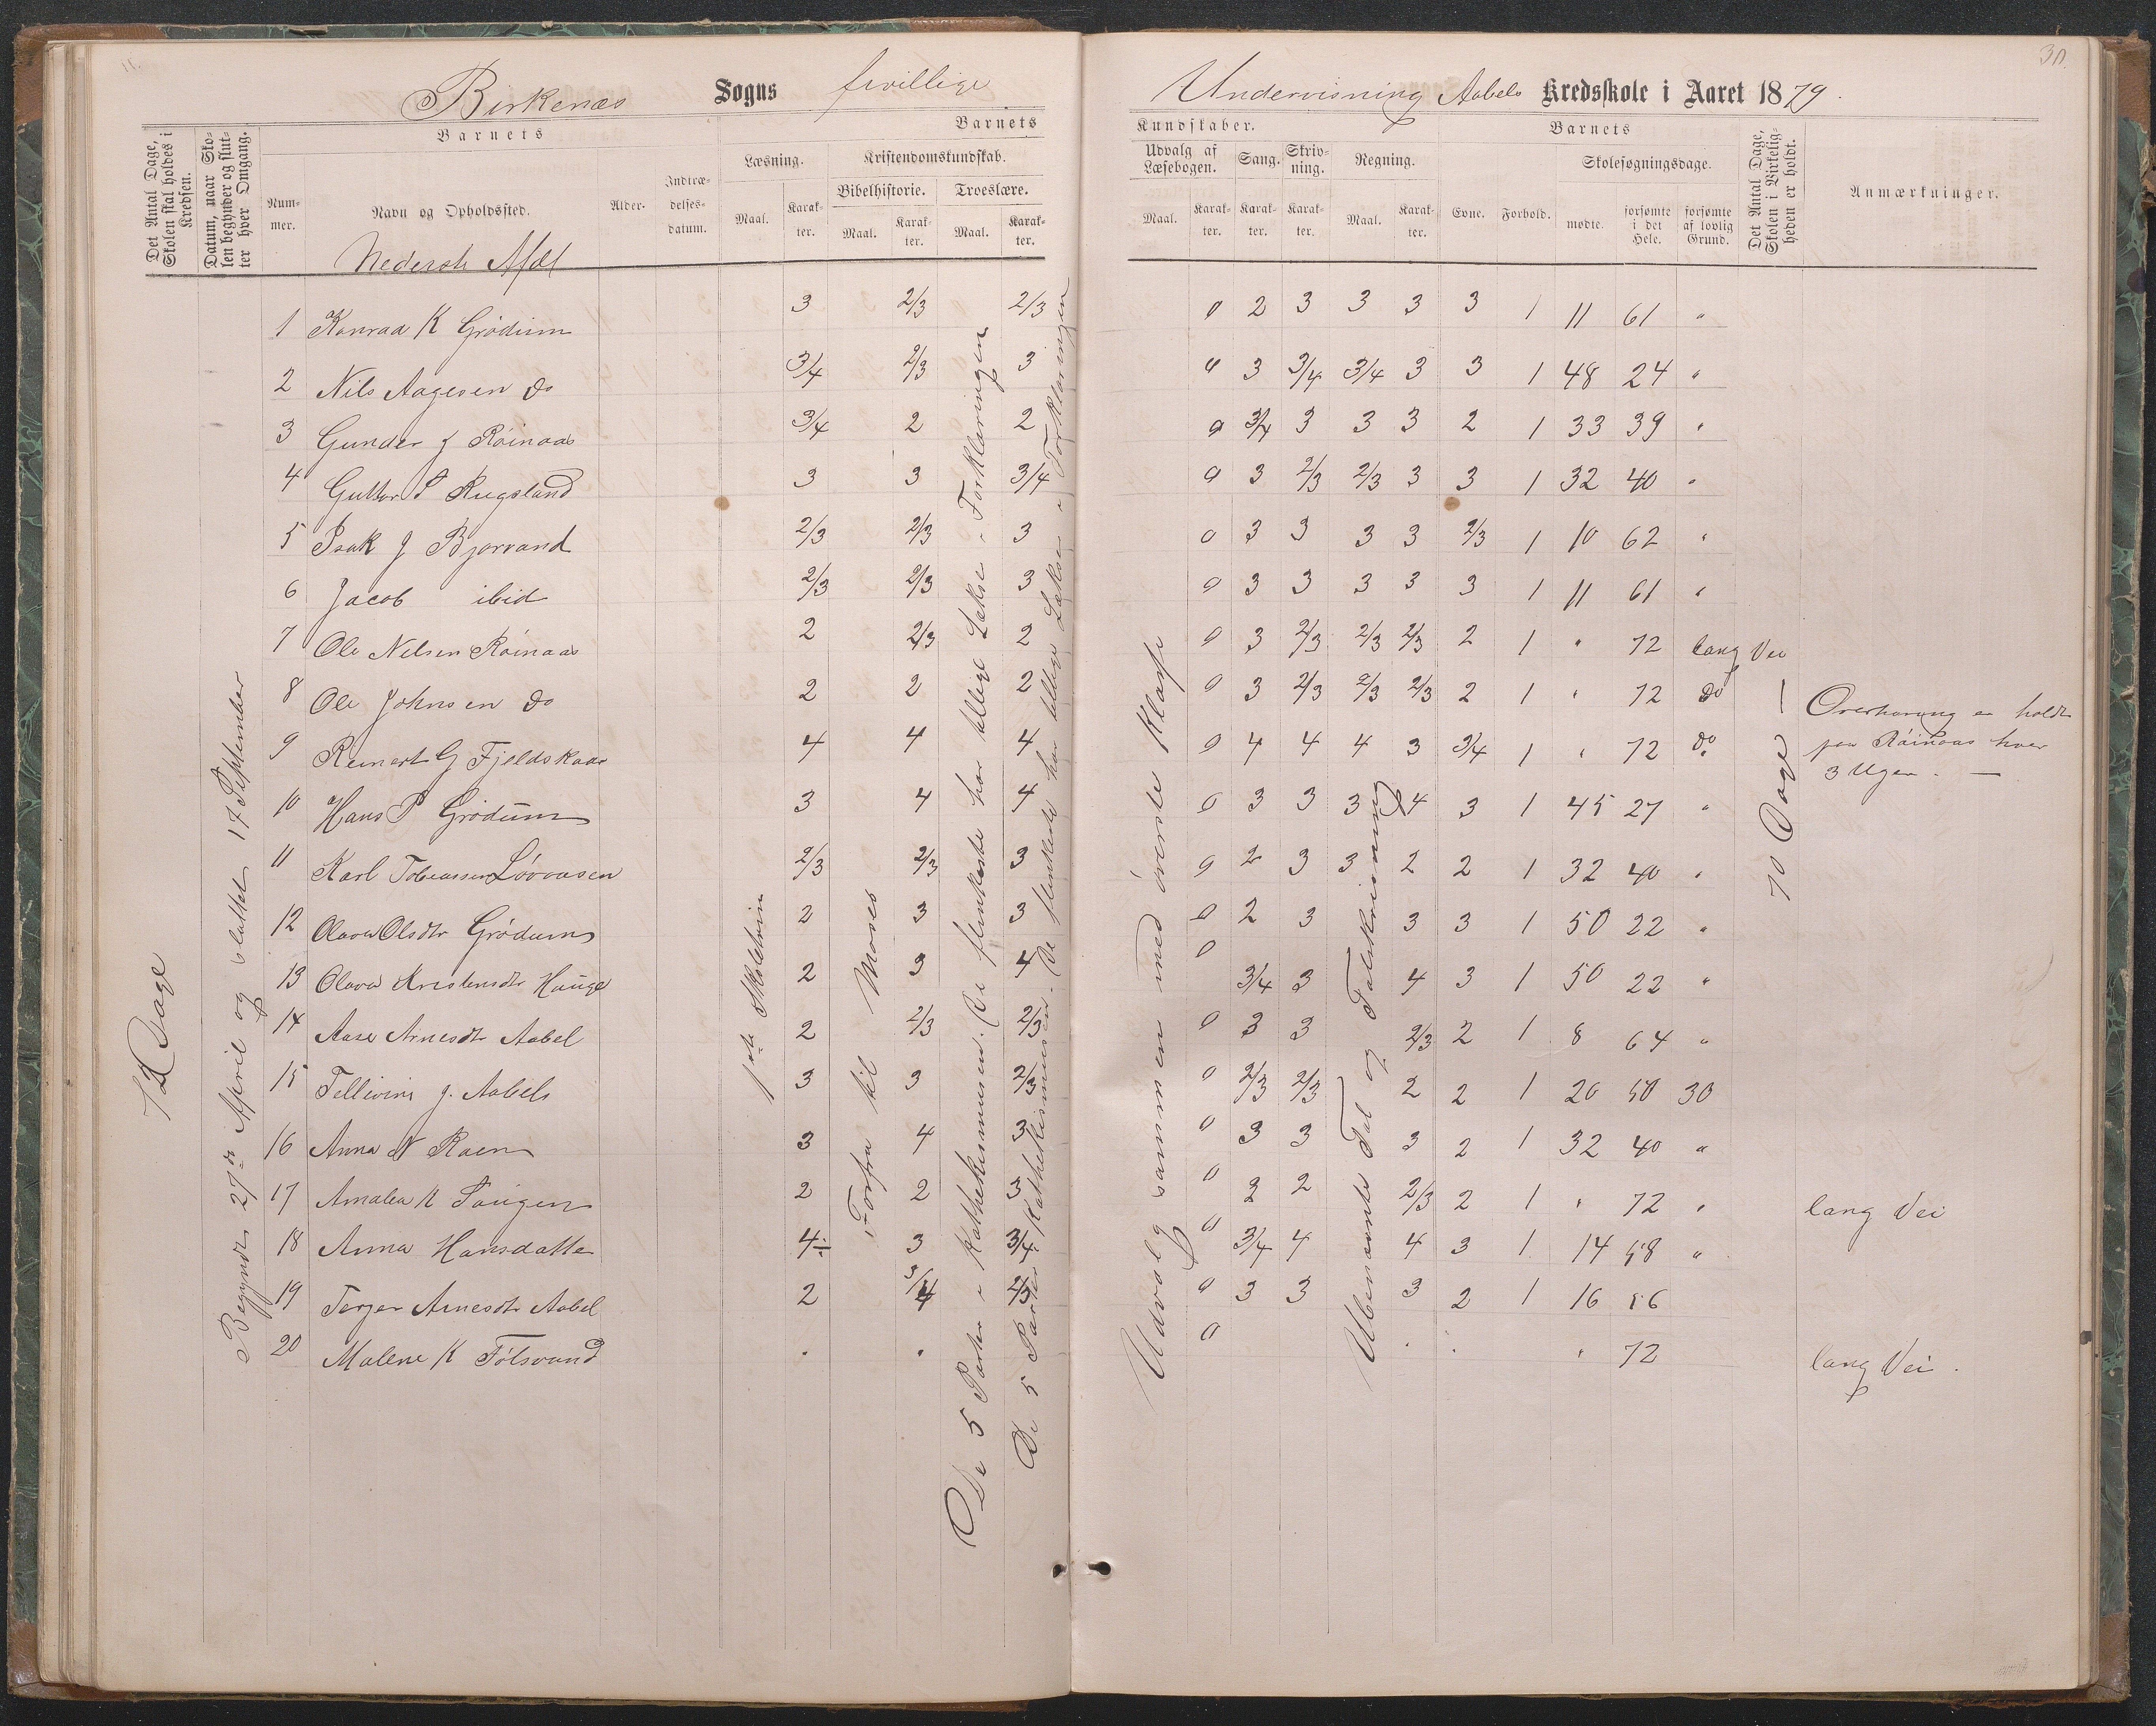 Birkenæs Sogns frivillige Undervisning Aabels Kredsskole i Aaret 1879.
Det Antal Dage, Skolen skal holdes i Kredsen.
Datum, naar Skolen begynder og slutter hver Omgang.
Barnets
Nummer.
Navn og Opholdssted.
Alder.
Indtrædelsesdatum.
Barnets
Kundskaber.
Læsning.
Maal.
Karakter.
Kristendomskundskab.
Bibelhistorie.
Maal.
Karakter.
Troeslære.
Maal.
Karakter.
Udvalg af Læsebogen.
Maal.
Karakter.
Sang.
Karakter.
Skrivning.
Karakter.
Regning.
Maal.
Karakter.
Barnets
Evne.
Forhold.
Skolesøgningsdage.
mødte.
forsømte i det Hele.
forsømte af lovlig Grund.
Det Antal Dage, Skolen i Virkeligheden er holdt.
Anmærkninger.
Nederste Afdl
72 Dage
Begyndte 27de April og sluttet 17 September
1ste Skoletrin
Forfra til Moses
De 5 Parter i Kathekismusen. De flinkeste har tillige Lekse i Forklaringen
De 5 Parter i Kathekismusen. De flinkeste har tillige Lekse i Forklaringen
Udvalg sammen med øverste Klasse
Ubenævnte Tal og Talskrivning
70 Dage
1 Konrad K Grødum 3 2/3 2/3 0 2 3 3 3 3 1 11 61 "
2 Nils Aagesen do 3/4 2/3 3 0 3 3/4 3/4 3 3 1 48 24 "
3 Gunder J Røinaas 3/4 2 2 0 3/4 3 3 3 2 1 33 39 "
4 Guttor P Rugsland 3 3 3/4 0 3 2/3 2/3 3 3 1 32 40 "
5 Isak J Bjorvand 2/3 2/3 3 0 3 3 3 3 2/3 1 10 62 "
6 Jacob ibid 2/3 2/3 3 0 3 3 3 3 3 1 11 61 "
7 Ole Nelsen Røinaas 2 2/3 2 0 3 2/3 2/3 2/3 2 1 " 72 lang Vei
8 Ole Johnsen do 2 2 2 0 3 2/3 2/3 2/3 2 1 " 72 do
9 Reinert G Fjeldskaar 4 4 4 0 4 4 4 3 3/4 1 " 72 do
Overhøring er holdt
paa Røinaas hver
3 Uger. —
10 Hans P Grødum 3 4 4 0 3 3 3 4 3 1 45 27 "
11 Karl Tobiassen Løvaasen 2/3 2/3 3 0 2 3 3 2 2 1 32 40 "
12 Olava Olsdtr Grødum 2 3 3 0 2 3 3 3 1 50 22 "
13 Olava Kristensdtr Hauge 2 3 4 0 3/4 3 4 3 1 50 22 "
14 Aase Arnesdtr Aabel 2 2/3 2/3 0 3 3 2/3 2 1 8 64 "
15 Tellivine J. Aabels 3 3 2/3 0 2/3 2/3 2 2 1 20 50 30
16 Anna N Raen 3 4 3 0 3 3 3 2 1 32 40 "
17 Amalea K Taugen 2 2 3 0 2 2 2/3 2 1 " 72 " lang Vei
18 Anna Hansdatter 4÷ 3 3/4 0 3/4 4 4 3 1 14 58 "
19 Terjer Arnesdtr Aabel 2 3/4 2/3 0 3 3 3 2 1 16 56
20 Malene K Tølsvand . . 0 . . " 72 lang Vei.